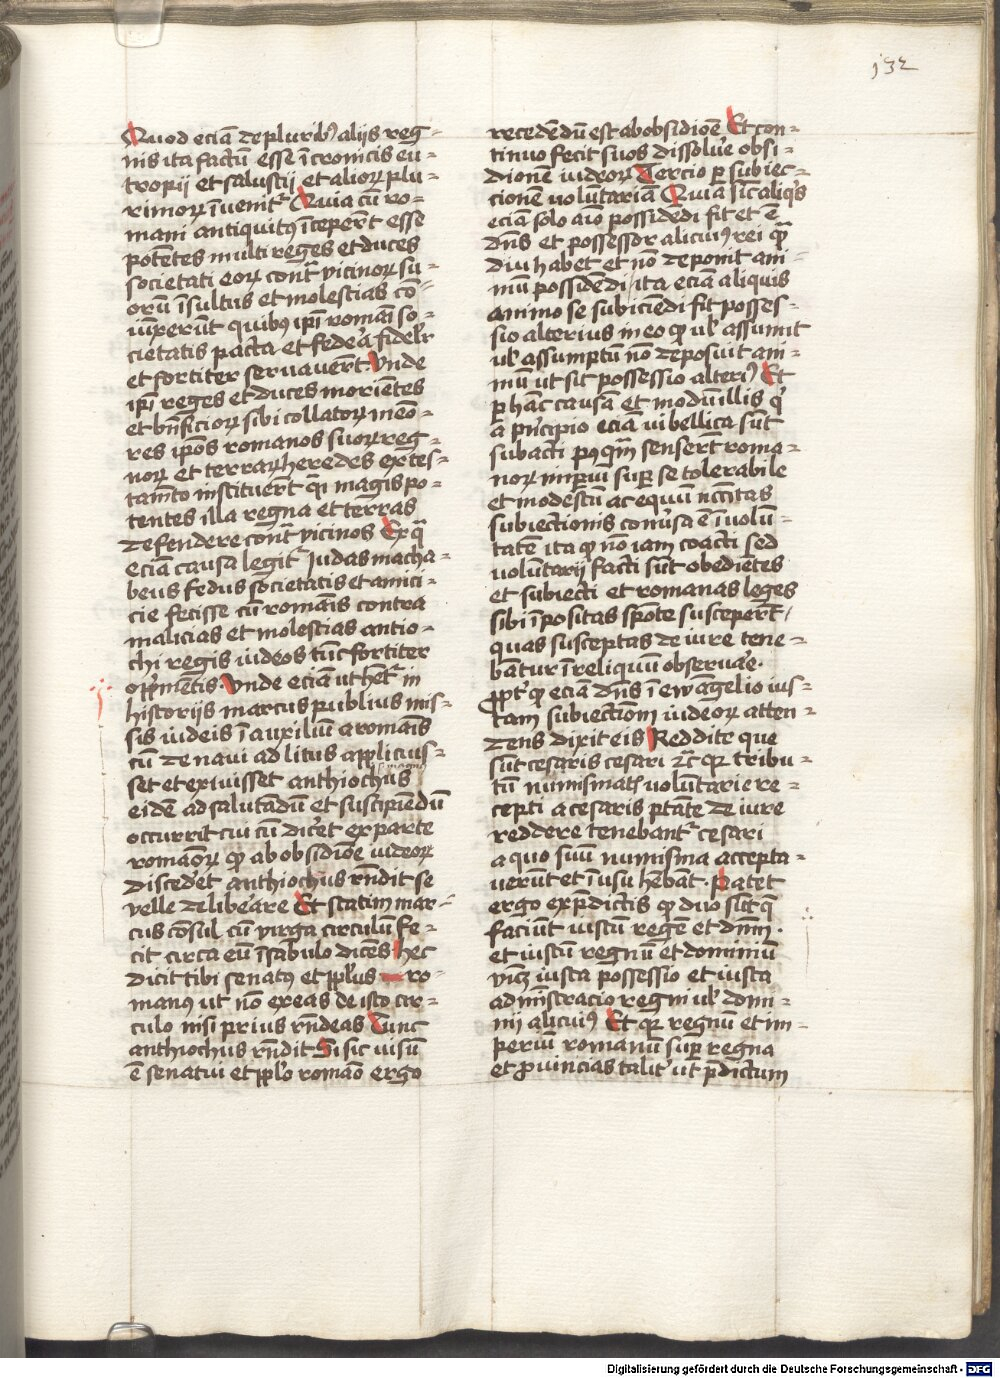 132
Quod eciā de pluribꝰ alijs reg-
nis ita factū esse ī cronicis eu-
tropii et salustii et alioꝝ plu-
rimoꝝ īvenitʳ Quia cū ro-
mani antiquitꝰ īceperūt esse
potētes multi reges et duces
societati eoꝝ contᵃ vicinoꝝ su-
orū īsultus et molestias cō-
iūxerūt quibꝰ ipī romāi so-
cietatis pacta et federa fidelʳ
et fortiter servaverūt. Vnde
ipī reges et duces moriētes
et bn̄ficioꝝ sibi collatoꝝ meō-
res ipōs romanos suoꝝ reg-
noꝝ et terraꝝ heredes ex tes-
tamēto instituerūt qᵃi magis po-
tentes illa regna et terras
defendere contᵃ vicinos Ex qᵃ
eciā causa legitʳ Judas macha-
beus fedus societatis et amici-
cie fecisse cū romāis contra
malicias et molestias antio-
chi regis iudeos tūc fortiter
opp̄mētis. Vnde eciā ut hr̄ in
historijs marcus publius mis-
sis iudeis ī auxiliū a romāis
cū de navi ad litus applicuis-
set et exivisset anthiochus
eidē ad salutādū et suscipiēdū
occurrit cui cū dicet̄ ex parte
romāoꝝ qꝫ ab obsidiōe iudeoꝝ
discedet̄ anthiochus rn̄dit se
velle deliberare Et statim mar-
cus cōsul cū virga circulū fe-
cit circa eū ī sabulo dicēs hec
dicit tibi senatꝰ et pplūs ro-
manꝰ ut nō exeas de isto cir-
culo nisi prius rn̄deas Tunc
anthiochus rn̄dit Si sic visū
ē senatui et pplō romāo ergo
recedēdū est ab obsidiōe Et con-
tinuo fecit suos dissolūe obsi-
dionē iudeoꝝ Tercio ꝑ subiec-
cionē volūtariā Quia sīc aliqͥs
eciā solo aīo possidēdi fit et ē
dn̄s et possessor alicuiꝰ rei qᵃ
diu habet et nō deponit ani-
mū possidēdi, ita eciā aliquis
animo se subiciēdi fit posses-
sio alterius in eo qꝫ vl̄ assumit
vl̄ assumptū nō deposuit ani-
mū ut sit possessio alteriꝰ Et
ꝑ hāc causā et modū illis qͥ
a pͥncipio eciā vi bellica sūt
subacti pꝰqᵃm senserūt roma-
noꝝ imꝑiū suꝑ se tolerabile
et modestū ac equū necc̄itas
subiectionis conv̄sa ē ī volū-
tatē ita qꝫ nō iam coacti sed
volūtarij facti sūt obediētes
et subiecti et romanas leges
sibi īpositas spōte susceperūt,
quas susceptas de iure tene-
bātur ī reliquū observāe.
ꝓptʳ qꝫ eciā dn̄s ī ewāgelio ius-
tam subiectiōm iudeoꝝ atten-
dens dixit eis Reddite que
sūt cesaris cesari ꝛc̄ qꝛ tribu-
tū numismatꝭ volūtarie re-
cepti a cesaris pt̄ate de iure
reddere tenebantʳ cesari
a quo suū numisma accepta-
verūt et ī usu hēbāt. Patet
ergo ex p̄dictis qꝫ duo sūt q̄
faciūt iustū regē et dnm̄.
et iustū regnū et dominiū
vicꝫ iusta possessio et iusta
admīstracio regni vl̄ domi-
nij alicuiꝰ Et qꝛ regnū et im-
periū romanū suꝑ regna
et ꝓvincias talitʳ ut p̄dictum
Digitalisierung gefördert durch die Deutsche Forschungsgemeinschaft - DFG